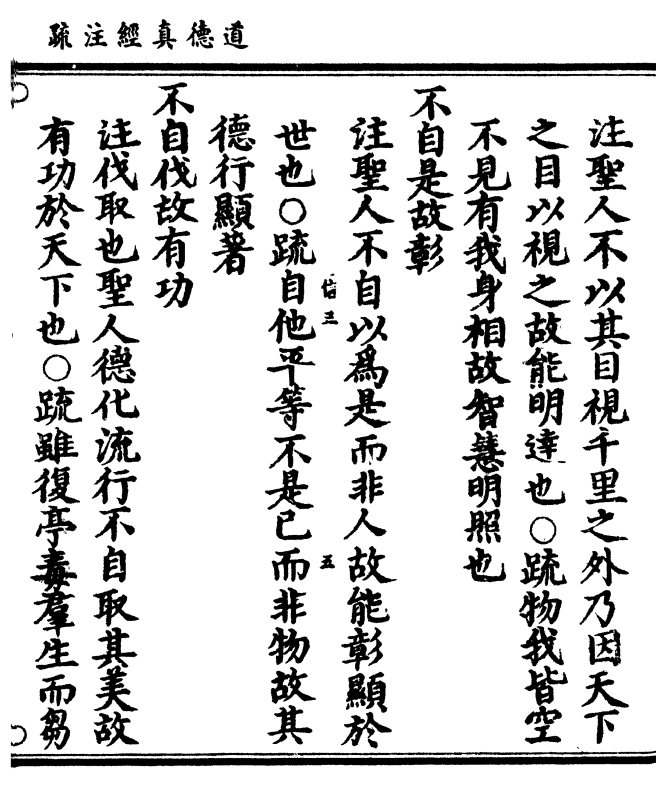 道德真經注疏
注聖人不以其目視千里之外乃因天下
之目以視之故能明達也○疏物我皆空
不見有我身相故智慧明照也
不自是故彰
注聖人不自以爲是而非人故能彰顯於
信三
五
世也○疏自他平等不是己而非物故其
德行顯著
不自伐故有功
注伐取也聖人德化流行不自取其美故
有功於天下也○疏雖復亭毒羣生而芻